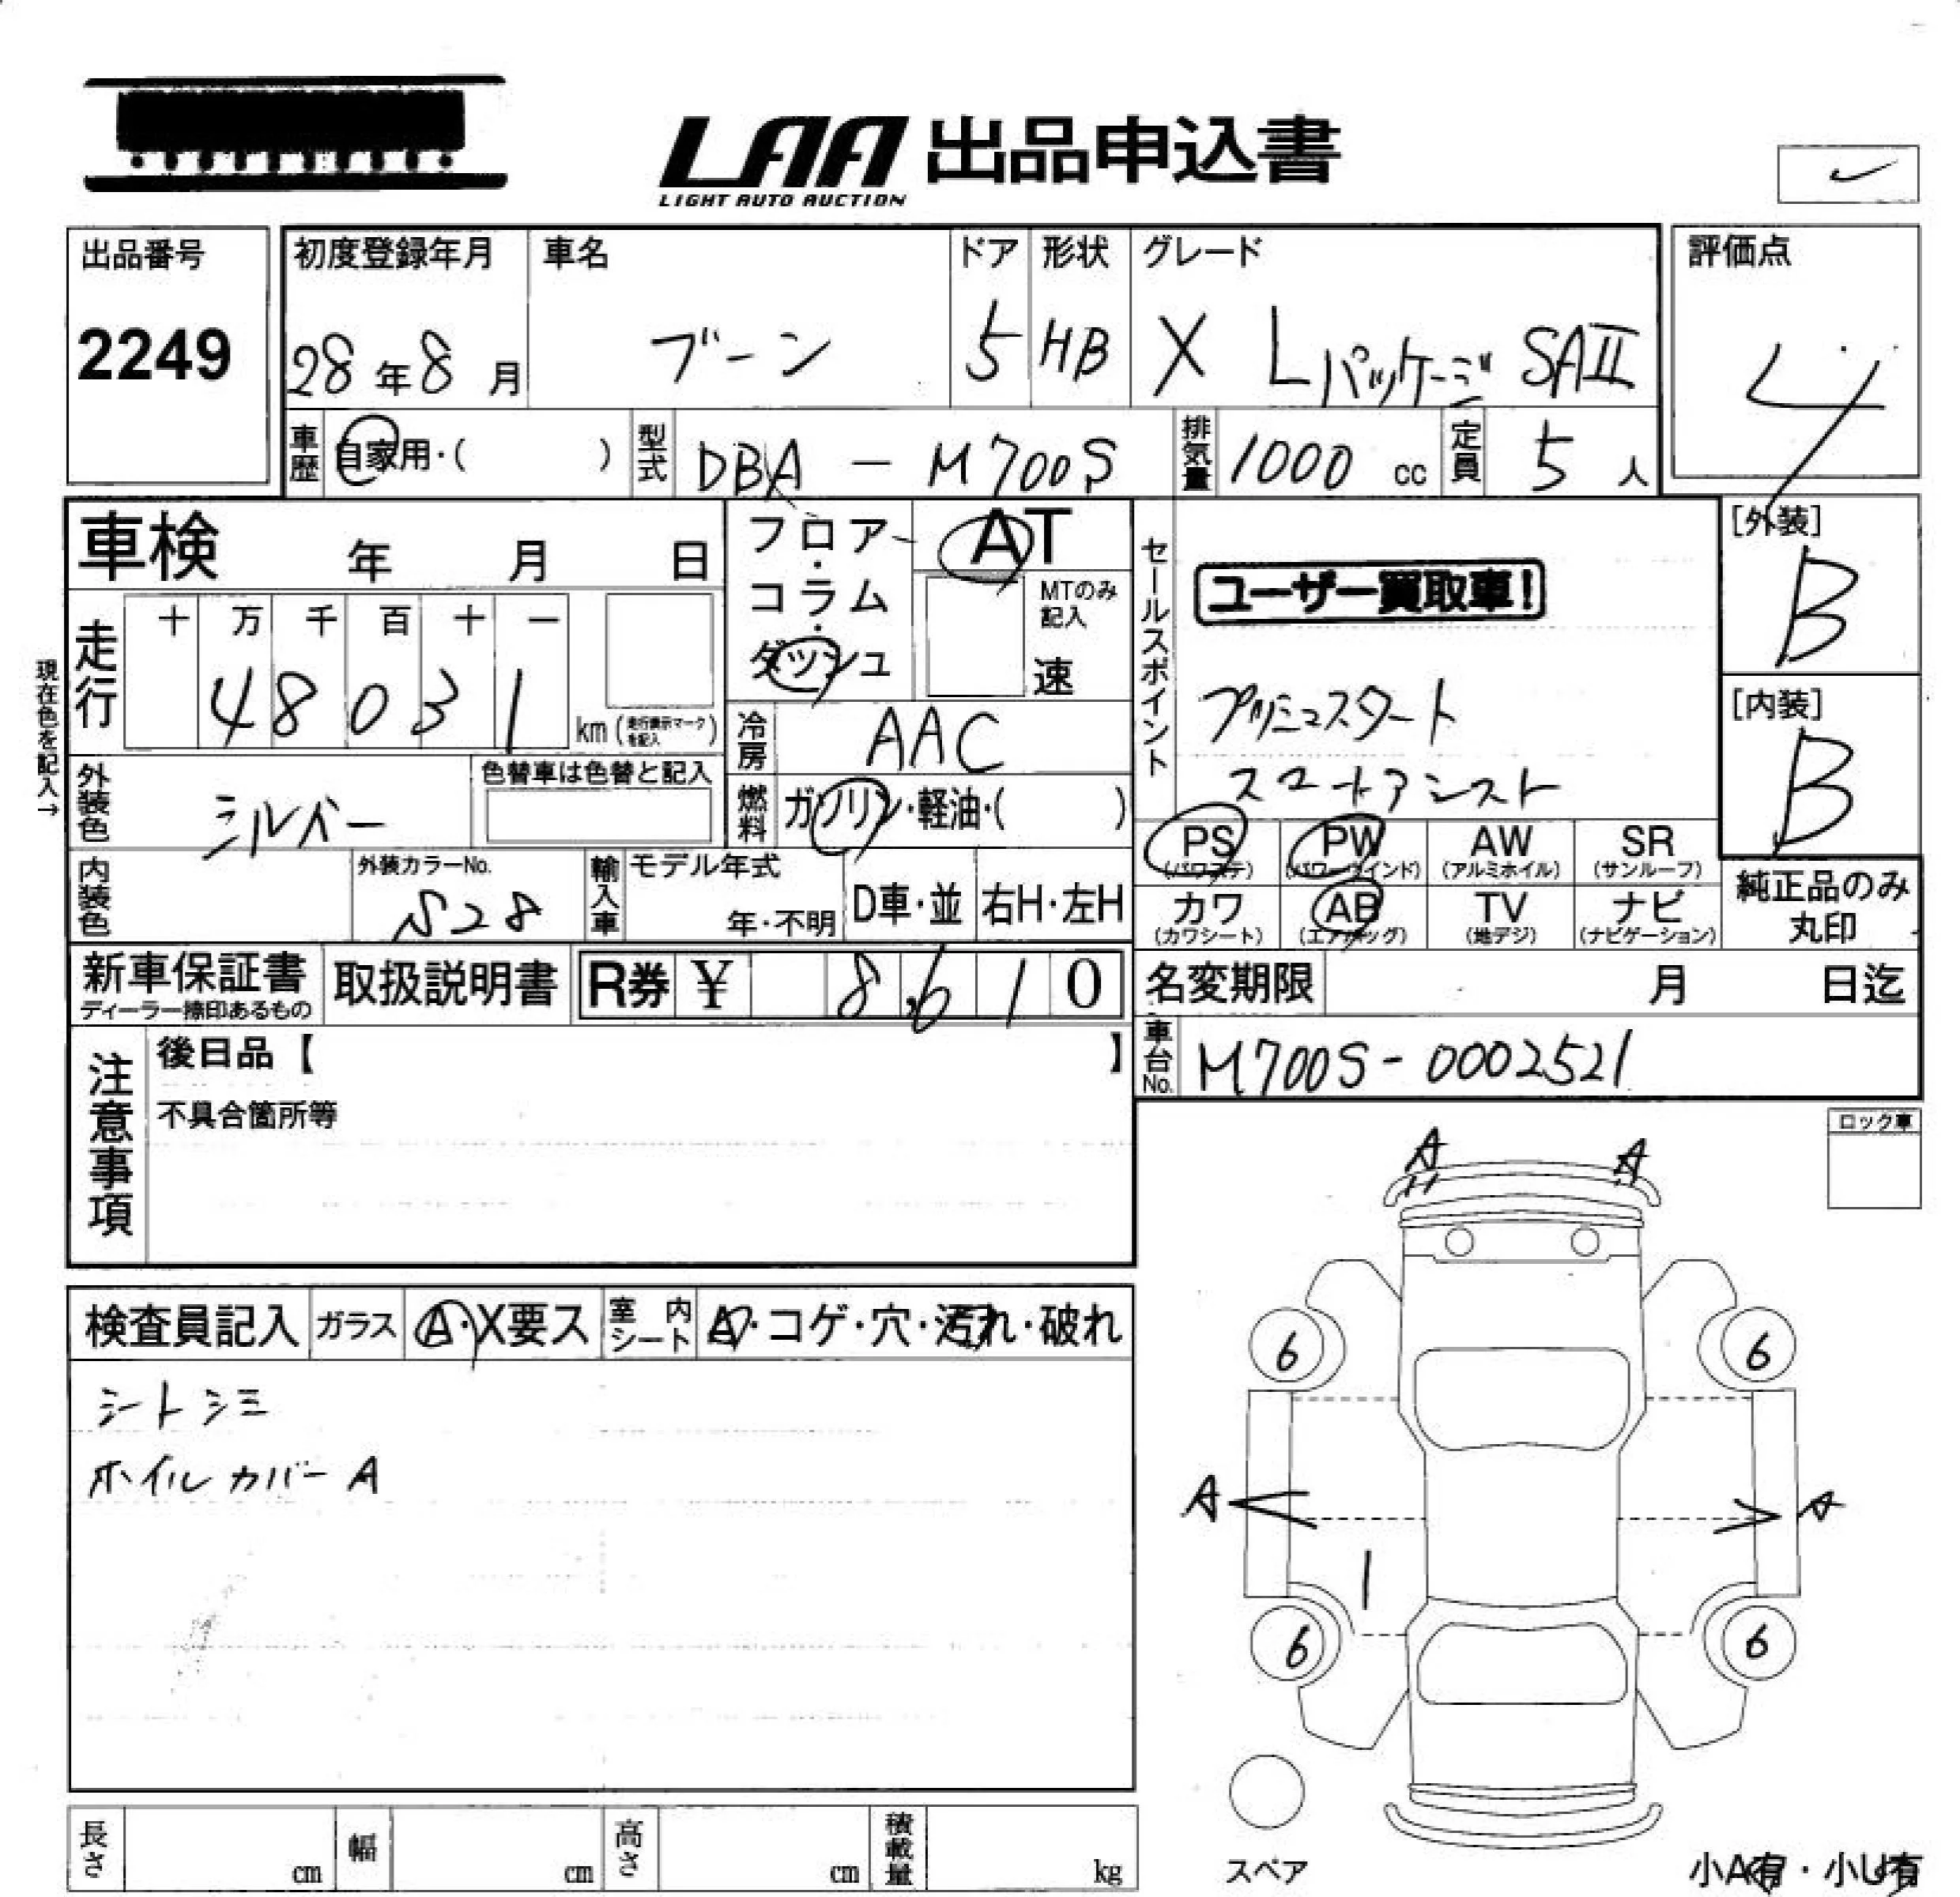 LAA 出品申込書
LIGHT AUTO AUCTION
出品番号 初度登録年月 車名 ドア 形状 グレード 評価点
2249 28年8月 ブーン 5 HB X Lパッケージ SAII 4
車歴 自家用・( ) 型式 DBA-M700S 排気量 1000 cc 定員 5 人
車検 年 月 日 フロア・コラム・ダッシュ AT
MTのみ記入 速
セールスポイント
ユーザー買取車!
プッシュスタート
スマートアシスト
[外装] B
[内装] B
現在色を記入→
走行 十 万 千 百 十 一
4 8 0 3 1 km (走行表示マークを記入)
冷房 AAC
外装色 シルバー 色替車は色替と記入
燃料 ガソリン・軽油・( )
PS (パワステ) PW (パワーウインド) AW (アルミホイル) SR (サンルーフ)
内装色 外装カラーNo. S28 輸入車 モデル年式 年・不明 D車・並 右H・左H
カワ (カワシート) AB (エアバッグ) TV (地デジ) ナビ (ナビゲーション)
純正品のみ丸印
新車保証書 取扱説明書 R券 ¥ 8,610
ディーラー捺印あるもの
名変期限 月 日迄
車台No. M700S-0002521
注意事項
後日品【 】
不具合箇所等
ロック車
A A
検査員記入 ガラス A・X要ス 室内シート A・コゲ・穴・汚れ・破れ
シートシミ
ホイルカバーA
6 6
A A
6 6
長さ cm 幅 cm 高さ cm 積載量 kg
スペア
小A有・小U有